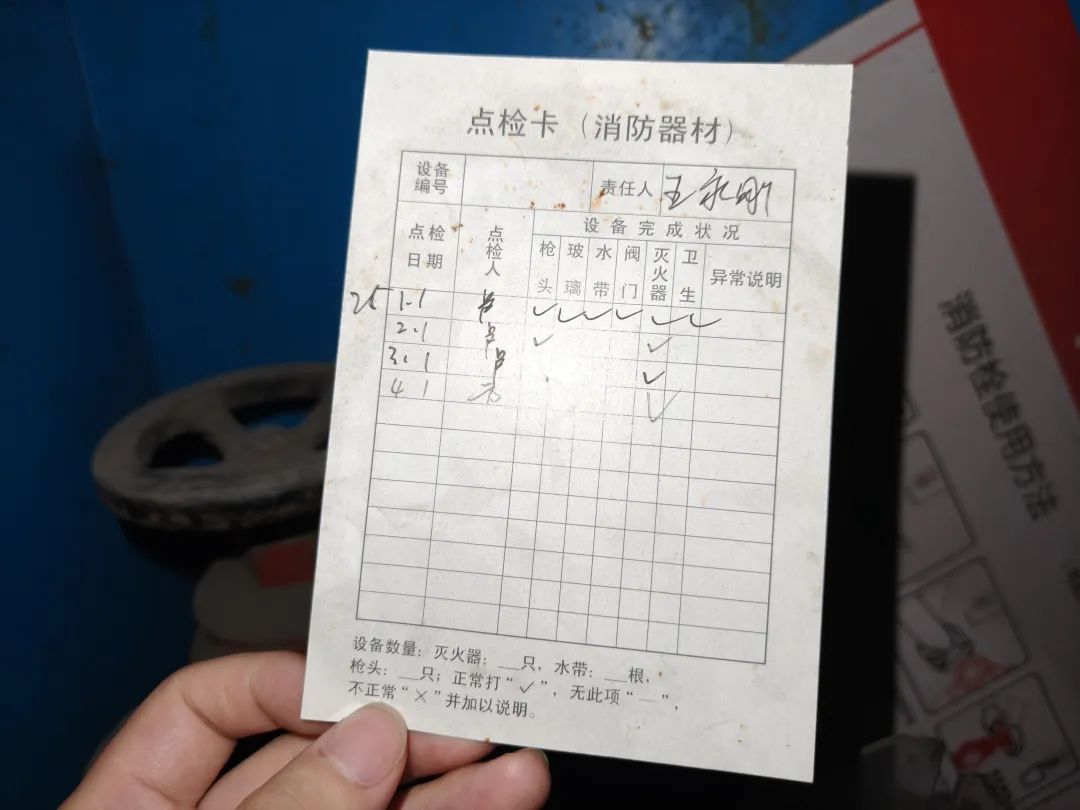 点检卡（消防器材）
设备编号 责任人 王永刚
点检日期 点检人 设备完成状况
枪头 玻璃 水带 阀门 灭火器 卫生 异常说明
25 1.1 ✓ ✓ ✓ ✓ ✓ ✓
2.1 ✓ ✓
3.1 ✓
4 1 ✓
设备数量：灭火器：__只，水带：__根，
枪头：__只；正常打“✓”，无此项“—”，
不正常“×”并加以说明。
消防栓使用方法